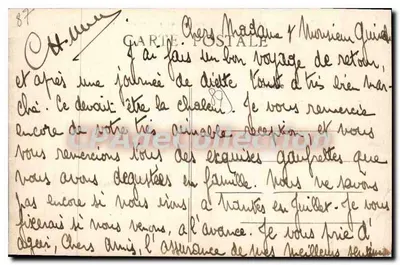 87
Chers Madame & Monsieur
CARTE POSTALE
J'ai fais un bon voyage de retour,
et après une journée de diette tout a très bien mar-
ché. Ce devait être la chaleur. Je vous remercie
encore de votre très aimable reception, et vous
vous remercions tous des exquises gaufrettes que
nous avons degustées en famille. Nous ne savons
pas encore si nous irons à Nantes en Juillet. Je vous
fixerais si nous venons, à l'avance. Je vous prie d'
agréer, Chers Amis, l'assurance de mes meilleurs sentiments